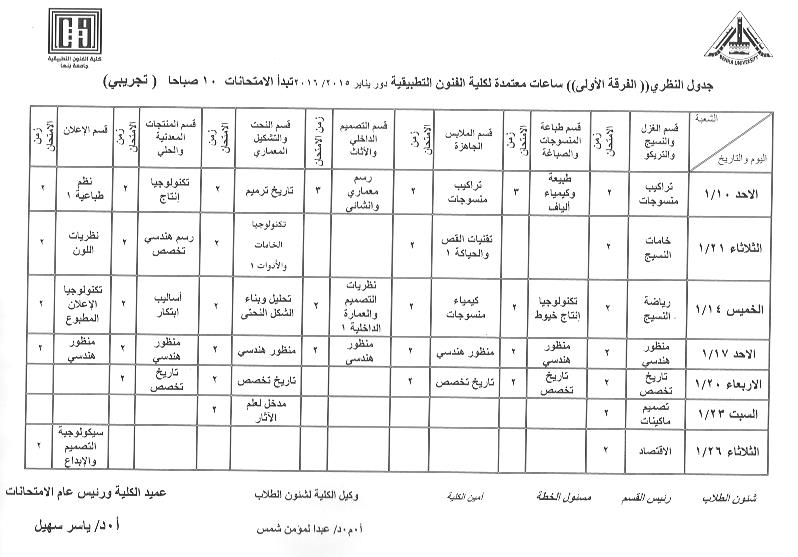 كلية الفنون التطبيقية
جامعة بنها
BENHA UNIVERSITY
جدول النظري(( الفرقة الأولى)) ساعات معتمدة لكلية الفنون التطبيقية دور يناير ٢٠١٥/ ٢٠١٦تبدأ الامتحانات ١٠ صباحا ( تجريبي)
الشعبة
اليوم والتاريخ
قسم الغزل والنسيج والتريكو
زمن الامتحان
قسم طباعة المنسوجات والصباغة
زمن الامتحان
قسم الملابس الجاهزة
زمن الامتحان
قسم التصميم الداخلي والأثاث
زمن الامتحان
قسم النحت والتشكيل المعماري
زمن الامتحان
قسم المنتجات المعدنية والحلي
زمن الامتحان
قسم الإعلان
زمن الامتحان
الاحد ١/١٠
تراكيب منسوجات
٢
طبيعة وكيمياء ألياف
٣
تراكيب منسوجات
٢
رسم معماري وانشائى
٣
تاريخ ترميم
٢
تكنولوجيا إنتاج
٢
نظم طباعية ١
٢
الثلاثاء ١/٢١
خامات النسيج
٢
تقنيات القص والحياكة ١
٢
تكنولوجيا الخامات والأدوات ١
٢
رسم هندسي تخصص
٢
نظريات اللون
٢
الخميس ١/١٤
رياضة النسيج
٢
تكنولوجيا إنتاج خيوط
٢
كيمياء منسوجات
٢
نظريات التصميم والعمارة الداخلية ١
٢
تحليل وبناء الشكل النحتى
٢
أساليب ابتكار
٢
تكنولوجيا الإعلان المطبوع
٢
الاحد ١/١٧
منظور هندسي
٢
منظور هندسي
٢
منظور هندسي
٢
منظور هندسي
٢
منظور هندسي
٢
منظور هندسي
٢
منظور هندسي
٢
الاربعاء ١/٢٠
تاريخ تخصص
٢
تاريخ تخصص
٢
تاريخ تخصص
٢
تاريخ تخصص
٢
تاريخ تخصص
٢
السبت ١/٢٣
تصميم ماكينات
٢
مدخل لعلم الآثار
٢
الثلاثاء ١/٢٦
الاقتصاد
٢
سيكولوجية التصميم والإبداع
٢
شئون الطلاب
رئيس القسم
مسئول الخطة
أمين الكلية
وكيل الكلية لشئون الطلاب
عميد الكلية ورئيس عام الامتحانات
أ٠م٠د/ عبدا لمؤمن شمس
أ٠د/ ياسر سهيل